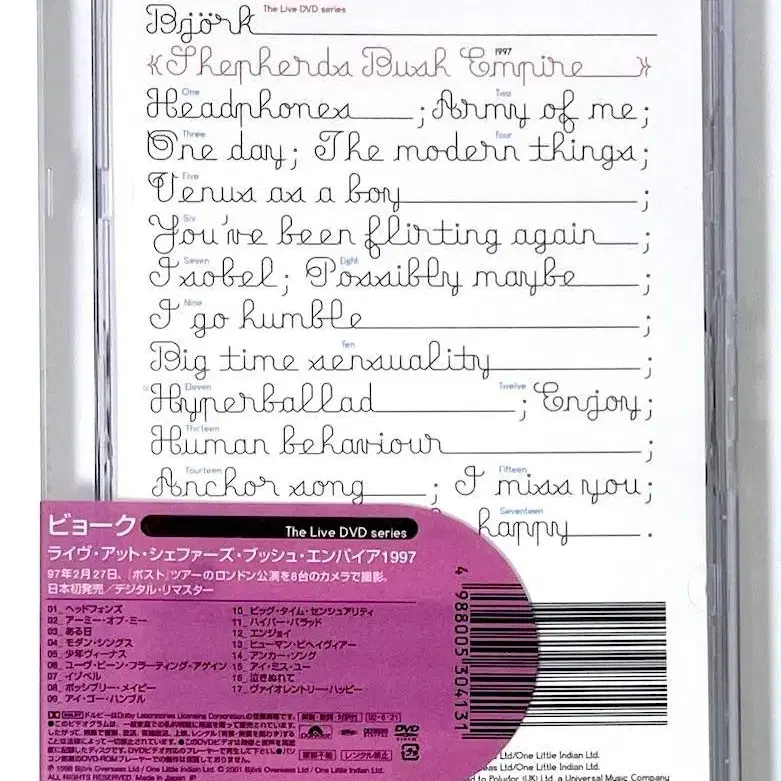 Björk The Live DVD series
《Shepherds Bush Empire 1997》
One Two
Headphones ; Army of me ;
Three Four
One day ; The modern things ;
Five
Venus as a boy ;
Six
You've been flirting again ;
Seven Eight
Isobel ; Possibly maybe ;
Nine
I go humble ;
Ten
Big time sensuality ;
Eleven Twelve
Hyperballad ; Enjoy ;
Thirteen
Human behaviour ;
Fourteen Fifteen
Anchor song ; I miss you ;
Seventeen
happy .
ビョーク The Live DVD series
ライヴ・アット・シェファーズ・ブッシュ・エンパイア1997
97年2月27日、『ポスト』ツアーのロンドン公演を8台のカメラで撮影。
日本初発売／デジタル・リマスター
01_ ヘッドフォンズ
02_ アーミー・オブ・ミー
03_ ある日
04_ モダン・シングス
05_ 少年ヴィーナス
06_ ユーヴ・ビーン・フラーティング・アゲイン
07_ イゾベル
08_ ポッシブリー・メイビー
09_ アイ・ゴー・ハンブル
10_ ビッグ・タイム・センシュアリティ
11_ ハイパー・バラッド
12_ エンジョイ
13_ ヒューマン・ビヘイヴィアー
14_ アンカー・ソング
15_ アイ・ミス・ユー
16_ 泣きぬれて
17_ ヴァイオレントリー・ハッピー
4 988005 304131
02・6・21
レンタル禁止
DVD
VIDEO
Polydor
℗ 1998 Björk Overseas Ltd / One Little Indian Ltd. © 2001 Björk Overseas Ltd / One Little Indian Ltd.
ALL RIGHTS RESERVED. Made in Japan
Ltd/One Little Indian Ltd.
eas Ltd/One Little Indian Ltd.
d to Polydor (UK) Ltd. a Universal Music Company